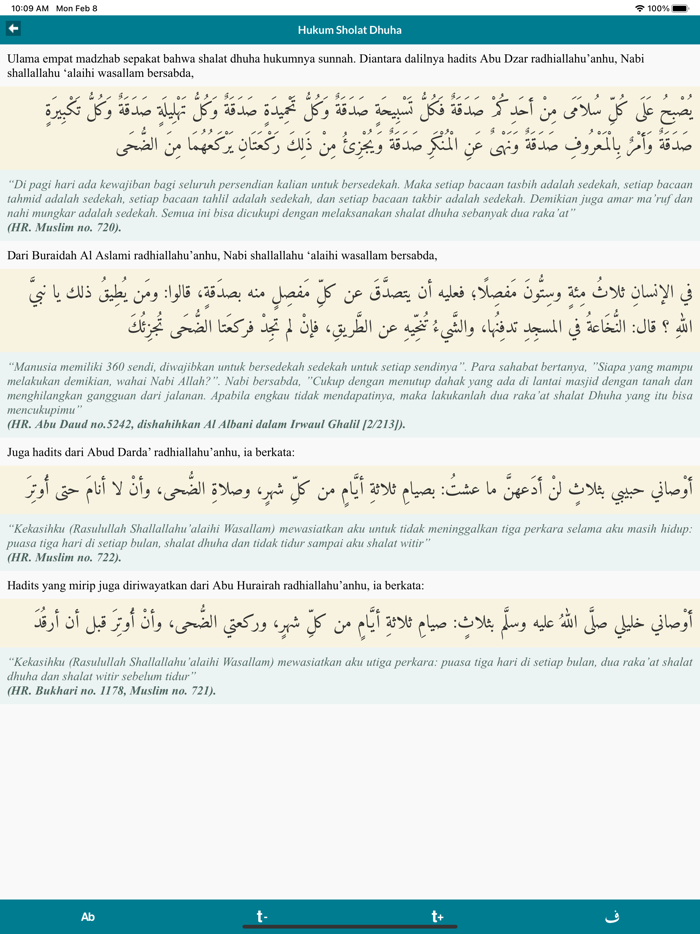 10:09 AM Mon Feb 8
100%
Hukum Sholat Dhuha
Ulama empat madzhab sepakat bahwa shalat dhuha hukumnya sunnah. Diantara dalilnya hadits Abu Dzar radhiallahu’anhu, Nabi
shallallahu ‘alaihi wasallam bersabda,
يُصْبِحُ عَلَى كُلِّ سُلاَمَى مِنْ أَحَدِكُمْ صَدَقَةٌ فَكُلُّ تَسْبِيحَةٍ صَدَقَةٌ وَكُلُّ تَحْمِيدَةٍ صَدَقَةٌ وَكُلُّ تَهْلِيلَةٍ صَدَقَةٌ وَكُلُّ تَكْبِيرَةٍ
صَدَقَةٌ وَأَمْرٌ بِالْمَعْرُوفِ صَدَقَةٌ وَنَهْىٌ عَنِ الْمُنْكَرِ صَدَقَةٌ وَيُجْزِئُ مِنْ ذَلِكَ رَكْعَتَانِ يَرْكَعُهُمَا مِنَ الضُّحَى
“Di pagi hari ada kewajiban bagi seluruh persendian kalian untuk bersedekah. Maka setiap bacaan tasbih adalah sedekah, setiap bacaan
tahmid adalah sedekah, setiap bacaan tahlil adalah sedekah, dan setiap bacaan takbir adalah sedekah. Demikian juga amar ma’ruf dan
nahi mungkar adalah sedekah. Semua ini bisa dicukupi dengan melaksanakan shalat dhuha sebanyak dua raka’at”
(HR. Muslim no. 720).
Dari Buraidah Al Aslami radhiallahu’anhu, Nabi shallallahu ‘alaihi wasallam bersabda,
في الإنسانِ ثلاثُ مِئةٍ وسِتُّونَ مَفصِلًا؛ فعليه أن يتصدَّقَ عن كلِّ مَفصِلٍ منه بصدَقةٍ، قالوا: ومَن يُطِيقُ ذلك يا نبيَّ
اللهِ ؟ قال: النُّخَاعةُ في المسجِدِ تدفِنُها، والشَّيءُ تُنَحِّيهِ عن الطَّريقِ، فإنْ لم تجِدْ فركعَتا الضُّحَى تُجزِئُكَ
“Manusia memiliki 360 sendi, diwajibkan untuk bersedekah sedekah untuk setiap sendinya”. Para sahabat bertanya, ”Siapa yang mampu
melakukan demikian, wahai Nabi Allah?”. Nabi bersabda, ”Cukup dengan menutup dahak yang ada di lantai masjid dengan tanah dan
menghilangkan gangguan dari jalanan. Apabila engkau tidak mendapatinya, maka lakukanlah dua raka’at shalat Dhuha yang itu bisa
mencukupimu”
(HR. Abu Daud no.5242, dishahihkan Al Albani dalam Irwaul Ghalil [2/213]).
Juga hadits dari Abud Darda’ radhiallahu’anhu, ia berkata:
أوْصاني حبيبي بثلاثٍ لنْ أدَعهنَّ ما عشتُ: بصيامِ ثلاثةِ أيَّامٍ من كلِّ شهرٍ، وصلاةِ الضُّحى، وأنْ لا أنامَ حتى أُوتِرَ
“Kekasihku (Rasulullah Shallallahu’alaihi Wasallam) mewasiatkan aku untuk tidak meninggalkan tiga perkara selama aku masih hidup:
puasa tiga hari di setiap bulan, shalat dhuha dan tidak tidur sampai aku shalat witir”
(HR. Muslim no. 722).
Hadits yang mirip juga diriwayatkan dari Abu Hurairah radhiallahu’anhu, ia berkata:
أوْصاني خليلي صلَّى اللهُ عليه وسلَّم بثلاثٍ: صيامِ ثلاثةِ أيَّامٍ من كلِّ شهرٍ، وركعتي الضُّحى، وأنْ أُوتِرَ قبل أن أرقُدَ
“Kekasihku (Rasulullah Shallallahu’alaihi Wasallam) mewasiatkan aku utiga perkara: puasa tiga hari di setiap bulan, dua raka’at shalat
dhuha dan shalat witir sebelum tidur”
(HR. Bukhari no. 1178, Muslim no. 721).
Ab t- t+ ف